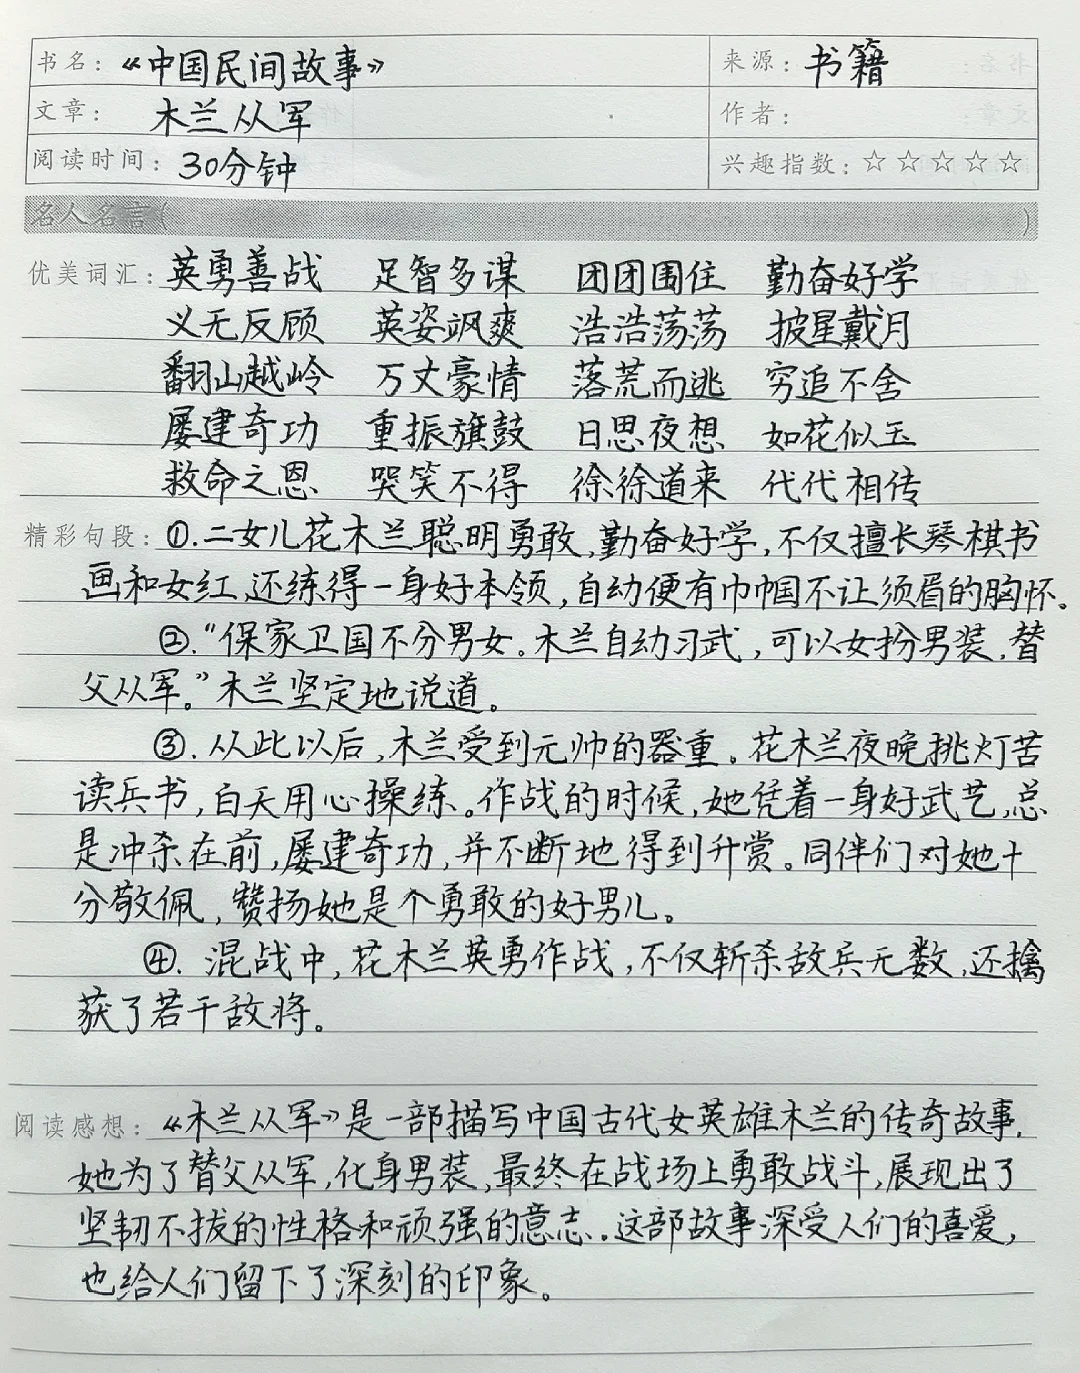 书名：《中国民间故事》 来源：书籍
文章： 木兰从军 作者：
阅读时间：30分钟 兴趣指数：☆☆☆☆☆
名人名言（ ）
优美词汇：英勇善战 足智多谋 团团围住 勤奋好学
义无反顾 英姿飒爽 浩浩荡荡 披星戴月
翻山越岭 万丈豪情 落荒而逃 穷追不舍
屡建奇功 重振旗鼓 日思夜想 如花似玉
救命之恩 哭笑不得 徐徐道来 代代相传
精彩句段：①.二女儿花木兰聪明勇敢,勤奋好学,不仅擅长琴棋书
画和女红,还练得一身好本领,自幼便有巾帼不让须眉的胸怀。
②.“保家卫国不分男女。木兰自幼习武,可以女扮男装,替
父从军。”木兰坚定地说道。
③.从此以后,木兰受到元帅的器重。花木兰夜晚挑灯苦
读兵书,白天用心操练。作战的时候,她凭着一身好武艺,总
是冲杀在前,屡建奇功,并不断地得到升赏。同伴们对她十
分敬佩,赞扬她是个勇敢的好男儿。
④.混战中,花木兰英勇作战,不仅斩杀敌兵无数,还擒
获了若干敌将。
阅读感想：《木兰从军》是一部描写中国古代女英雄木兰的传奇故事.
她为了替父从军,化身男装,最终在战场上勇敢战斗,展现出了
坚韧不拔的性格和顽强的意志.这部故事深受人们的喜爱,
也给人们留下了深刻的印象。